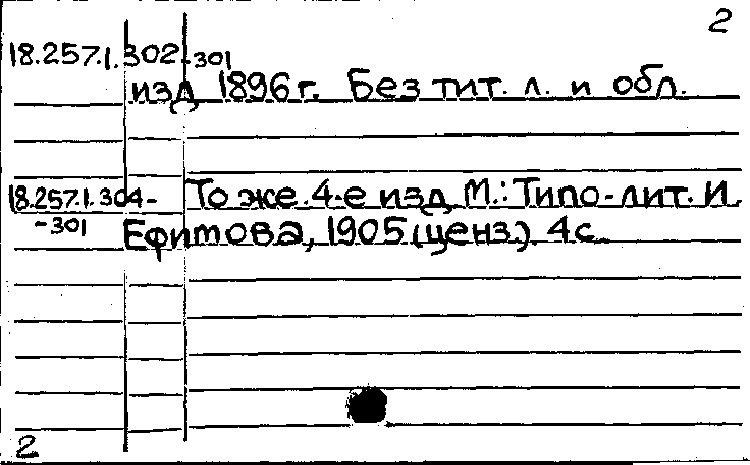 2
18.257.1.302-301
изд 1896 г. Без тит. л. и обл.
18.257.1.304- То же. 4-е изд. М.: Типо-лит. И.
-301 Ефимова, 1905 (ценз.). 4 с.
2